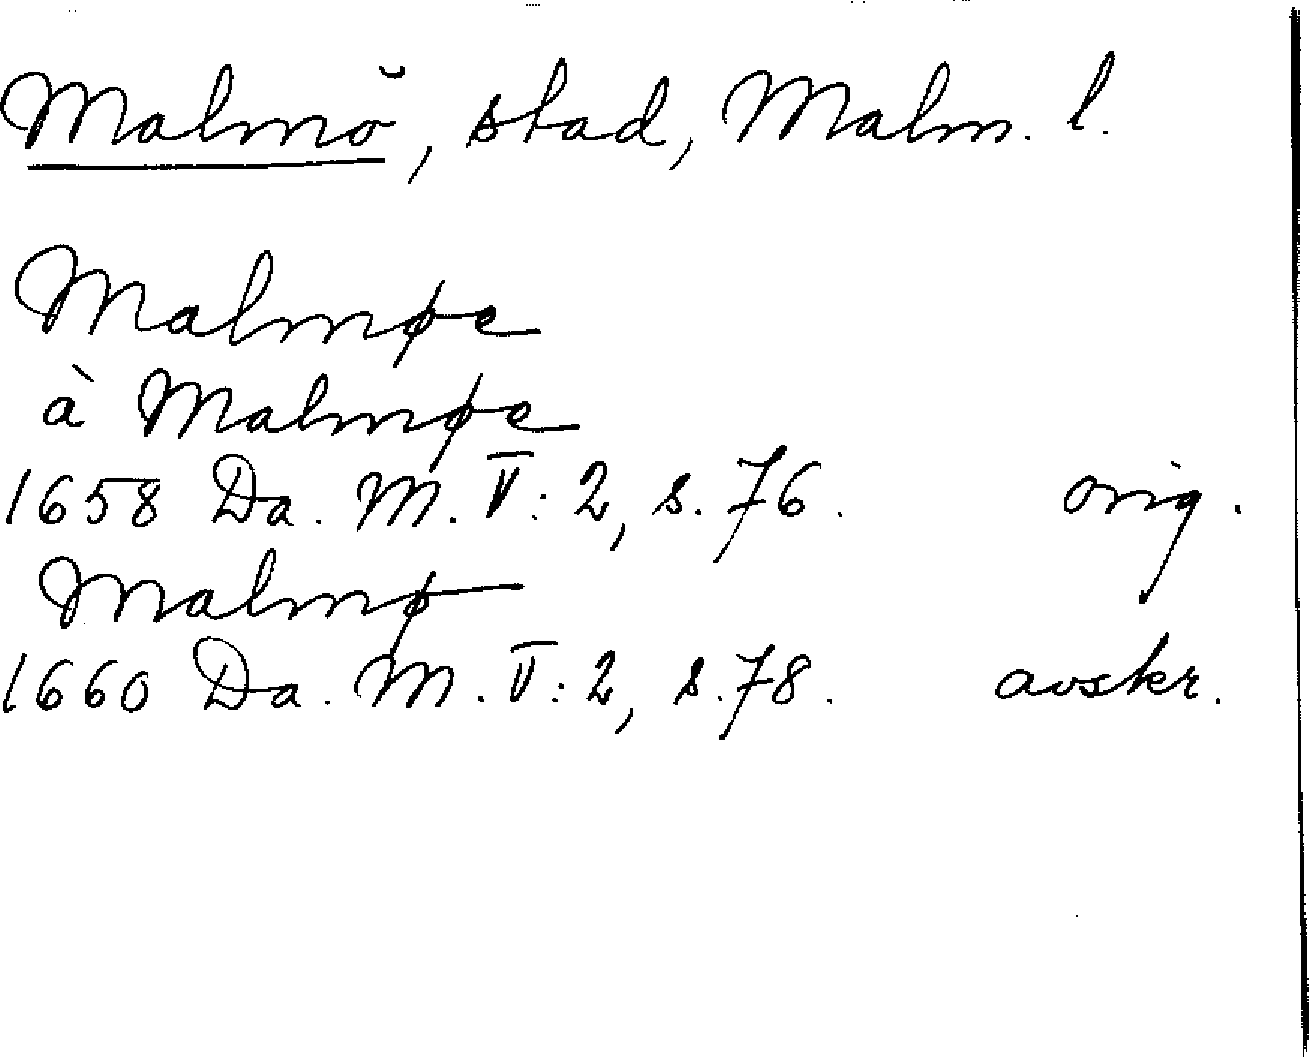 Malmö, stad, Malm. l.
Malmøe
à Malmøe
1658 Da. M. V: 2, s. 76. orig.
Malmø
1660 Da. M. V: 2, s. 78. avskr.